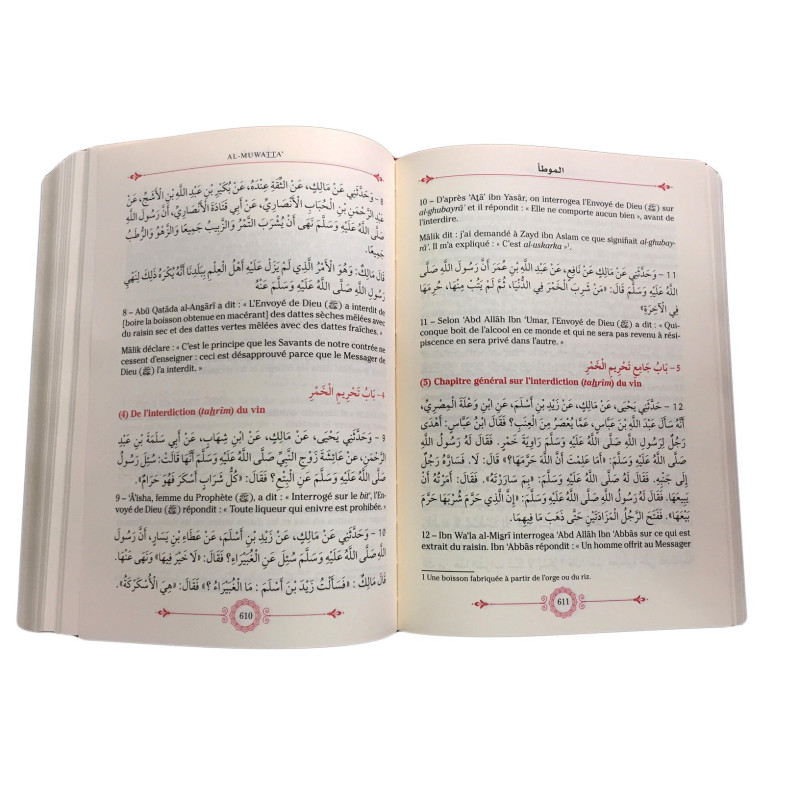 AL-MUWAṬṬA'
8 – وَحَدَّثَنِي عَنْ مَالِكٍ، عَنْ الثِّقَةِ عِنْدَهُ، عَنْ بُكَيْرِ بْنِ عَبْدِ اللَّهِ بْنِ الْأَشَجِّ، عَنْ
عَبْدِ الرَّحْمَنِ بْنِ الْحُبَابِ الْأَنْصَارِيِّ، عَنْ أَبِي قَتَادَةَ الْأَنْصَارِيِّ، أَنَّ رَسُولَ اللَّهِ
صَلَّى اللَّهُ عَلَيْهِ وَسَلَّمَ نَهَى أَنْ يُشْرَبَ التَّمْرُ وَالزَّبِيبُ جَمِيعًا، وَالزَّهْوُ وَالرُّطَبُ
جَمِيعًا.
قَالَ مَالِكٌ: وَهُوَ الْأَمْرُ الَّذِي لَمْ يَزَلْ عَلَيْهِ أَهْلُ الْعِلْمِ بِبَلَدِنَا أَنَّهُ يُكْرَهُ ذَلِكَ لِنَهْيِ
رَسُولِ اللَّهِ صَلَّى اللَّهُ عَلَيْهِ وَسَلَّمَ عَنْهُ
8 – Abū Qatāda al-Anṣārī a dit : « L'Envoyé de Dieu (ﷺ) a interdit de
[boire la boisson obtenue en macérant] des dattes sèches mêlées avec
du raisin sec et des dattes vertes mêlées avec des dattes fraîches. »
Mālik déclare : « C'est le principe que les Savants de notre contrée ne
cessent d'enseigner : ceci est désapprouvé parce que le Messager de
Dieu (ﷺ) l'a interdit. »
4– بَابُ تَحْرِيمِ الْخَمْرِ
(4) De l'interdiction (taḥrīm) du vin
9 – وَحَدَّثَنِي يَحْيَى، عَنْ مَالِكٍ، عَنْ ابْنِ شِهَابٍ، عَنْ أَبِي سَلَمَةَ بْنِ عَبْدِ
الرَّحْمَنِ، عَنْ عَائِشَةَ زَوْجِ النَّبِيِّ صَلَّى اللَّهُ عَلَيْهِ وَسَلَّمَ أَنَّهَا قَالَتْ: سُئِلَ رَسُولُ
اللَّهِ صَلَّى اللَّهُ عَلَيْهِ وَسَلَّمَ عَنِ الْبِتْعِ؟ فَقَالَ: «كُلُّ شَرَابٍ أَسْكَرَ فَهُوَ حَرَامٌ».
9 – 'Ā'isha, femme du Prophète (ﷺ), a dit : « Interrogé sur le bit', l'En-
voyé de Dieu (ﷺ) répondit : « Toute liqueur qui enivre est prohibée. »
10 – وَحَدَّثَنِي عَنْ مَالِكٍ، عَنْ زَيْدِ بْنِ أَسْلَمَ، عَنْ عَطَاءِ بْنِ يَسَارٍ، أَنَّ رَسُولَ
اللَّهِ صَلَّى اللَّهُ عَلَيْهِ وَسَلَّمَ سُئِلَ عَنِ الْغُبَيْرَاءِ؟ فَقَالَ: «لَا خَيْرَ فِيهَا» وَنَهَى عَنْهَا.
قَالَ مَالِكٌ: «فَسَأَلْتُ زَيْدَ بْنَ أَسْلَمَ: مَا الْغُبَيْرَاءُ ؟» فَقَالَ: «هِيَ الْأُسْكَرْكَةُ».
610
الموطأ
10 – D'après 'Aṭā' ibn Yasār, on interrogea l'Envoyé de Dieu (ﷺ) sur
al-ghubayrā' et il répondit : « Elle ne comporte aucun bien », avant de
l'interdire.
Mālik dit : j'ai demandé à Zayd ibn Aslam ce que signifiait al-ghubay-
rā'. Il m'a expliqué : « C'est al-uskarka »¹.
11 – وَحَدَّثَنِي عَنْ مَالِكٍ عَنْ نَافِعٍ، عَنْ عَبْدِ اللَّهِ بْنِ عُمَرَ أَنَّ رَسُولَ اللَّهِ صَلَّى
اللَّهُ عَلَيْهِ وَسَلَّمَ قَالَ: «مَنْ شَرِبَ الْخَمْرَ فِي الدُّنْيَا، ثُمَّ لَمْ يَتُبْ مِنْهَا، حُرِمَهَا
فِي الْآخِرَةِ»
11 – Selon 'Abd Allāh Ibn 'Umar, l'Envoyé de Dieu (ﷺ) a dit : « Qui-
conque boit de l'alcool en ce monde et qui ne sera pas revenu à rési-
piscence en sera privé dans l'autre. »
5– بَابُ جَامِعِ تَحْرِيمِ الْخَمْرِ
(5) Chapitre général sur l'interdiction (taḥrīm) du vin
12 – حَدَّثَنِي يَحْيَى، عَنْ مَالِكٍ، عَنْ زَيْدِ بْنِ أَسْلَمَ، عَنِ ابْنِ وَعْلَةَ الْمِصْرِيِّ،
أَنَّهُ سَأَلَ عَبْدَ اللَّهِ بْنَ عَبَّاسٍ، عَمَّا يُعْصَرُ مِنَ الْعِنَبِ؟ فَقَالَ ابْنُ عَبَّاسٍ: أَهْدَى
رَجُلٌ لِرَسُولِ اللَّهِ صَلَّى اللَّهُ عَلَيْهِ وَسَلَّمَ رَاوِيَةَ خَمْرٍ. فَقَالَ لَهُ رَسُولُ اللَّهِ
صَلَّى اللَّهُ عَلَيْهِ وَسَلَّمَ: «أَمَا عَلِمْتَ أَنَّ اللَّهَ حَرَّمَهَا؟» قَالَ: لَا. فَسَارَّهُ رَجُلٌ
إِلَى جَنْبِهِ. فَقَالَ لَهُ صَلَّى اللَّهُ عَلَيْهِ وَسَلَّمَ: «بِمَ سَارَرْتَهُ؟». فَقَالَ: أَمَرْتُهُ أَنْ
يَبِيعَهَا. فَقَالَ لَهُ رَسُولُ اللَّهِ صَلَّى اللَّهُ عَلَيْهِ وَسَلَّمَ: «إِنَّ الَّذِي حَرَّمَ شُرْبَهَا حَرَّمَ
بَيْعَهَا». فَفَتَحَ الرَّجُلُ الْمَزَادَتَيْنِ حَتَّى ذَهَبَ مَا فِيهِمَا.
12 – Ibn Wa'la al-Miṣrī interrogea 'Abd Allāh Ibn 'Abbās sur ce qui est
extrait du raisin. Ibn 'Abbās répondit : « Un homme offrit au Messager
1 Une boisson fabriquée à partir de l'orge ou du riz.
611